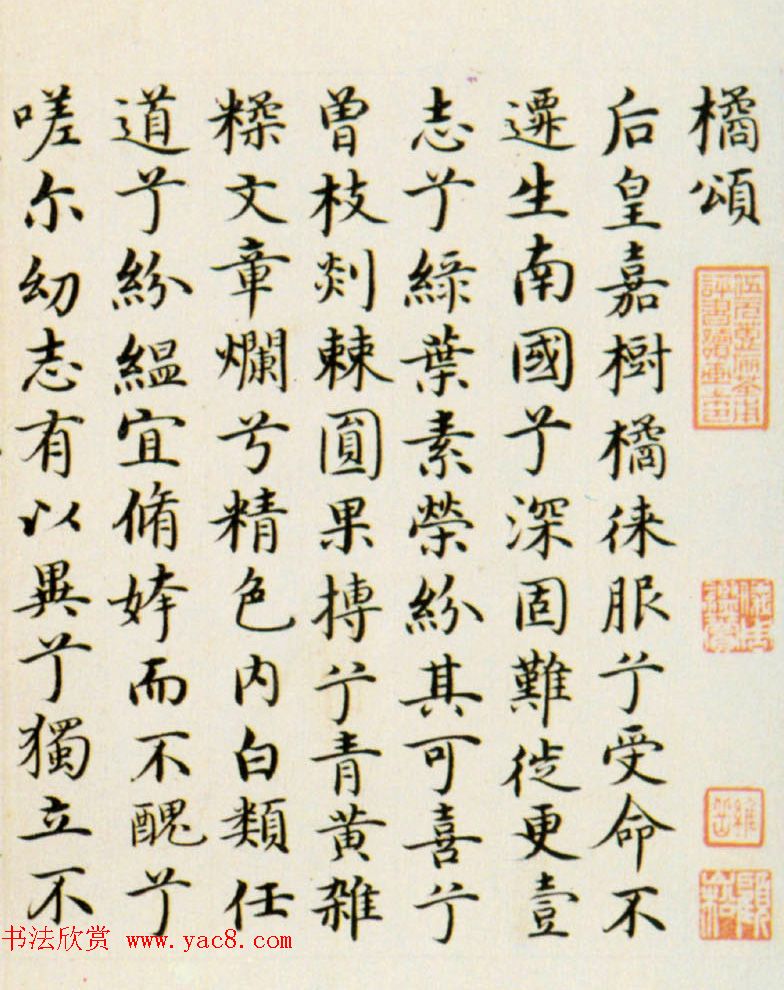 橘頌
后皇嘉樹橘徠服兮受命不
遷生南國兮深固難徙更壹
志兮綠葉素榮紛其可喜兮
曾枝剡棘圓果摶兮青黃雜
糅文章爛兮精色內白類任
道兮紛縕宜脩姱而不醜兮
嗟尔幼志有以異兮獨立不
书法欣赏 www.yac8.com